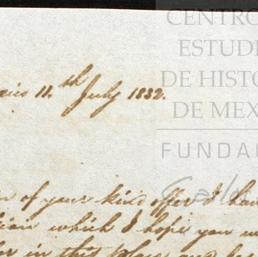 CENTRO
ESTUDI
DE HISTO
DE MEX
FUNDA
11th July 1832.
of your kind offer I ha
which I hope you w
in this place and